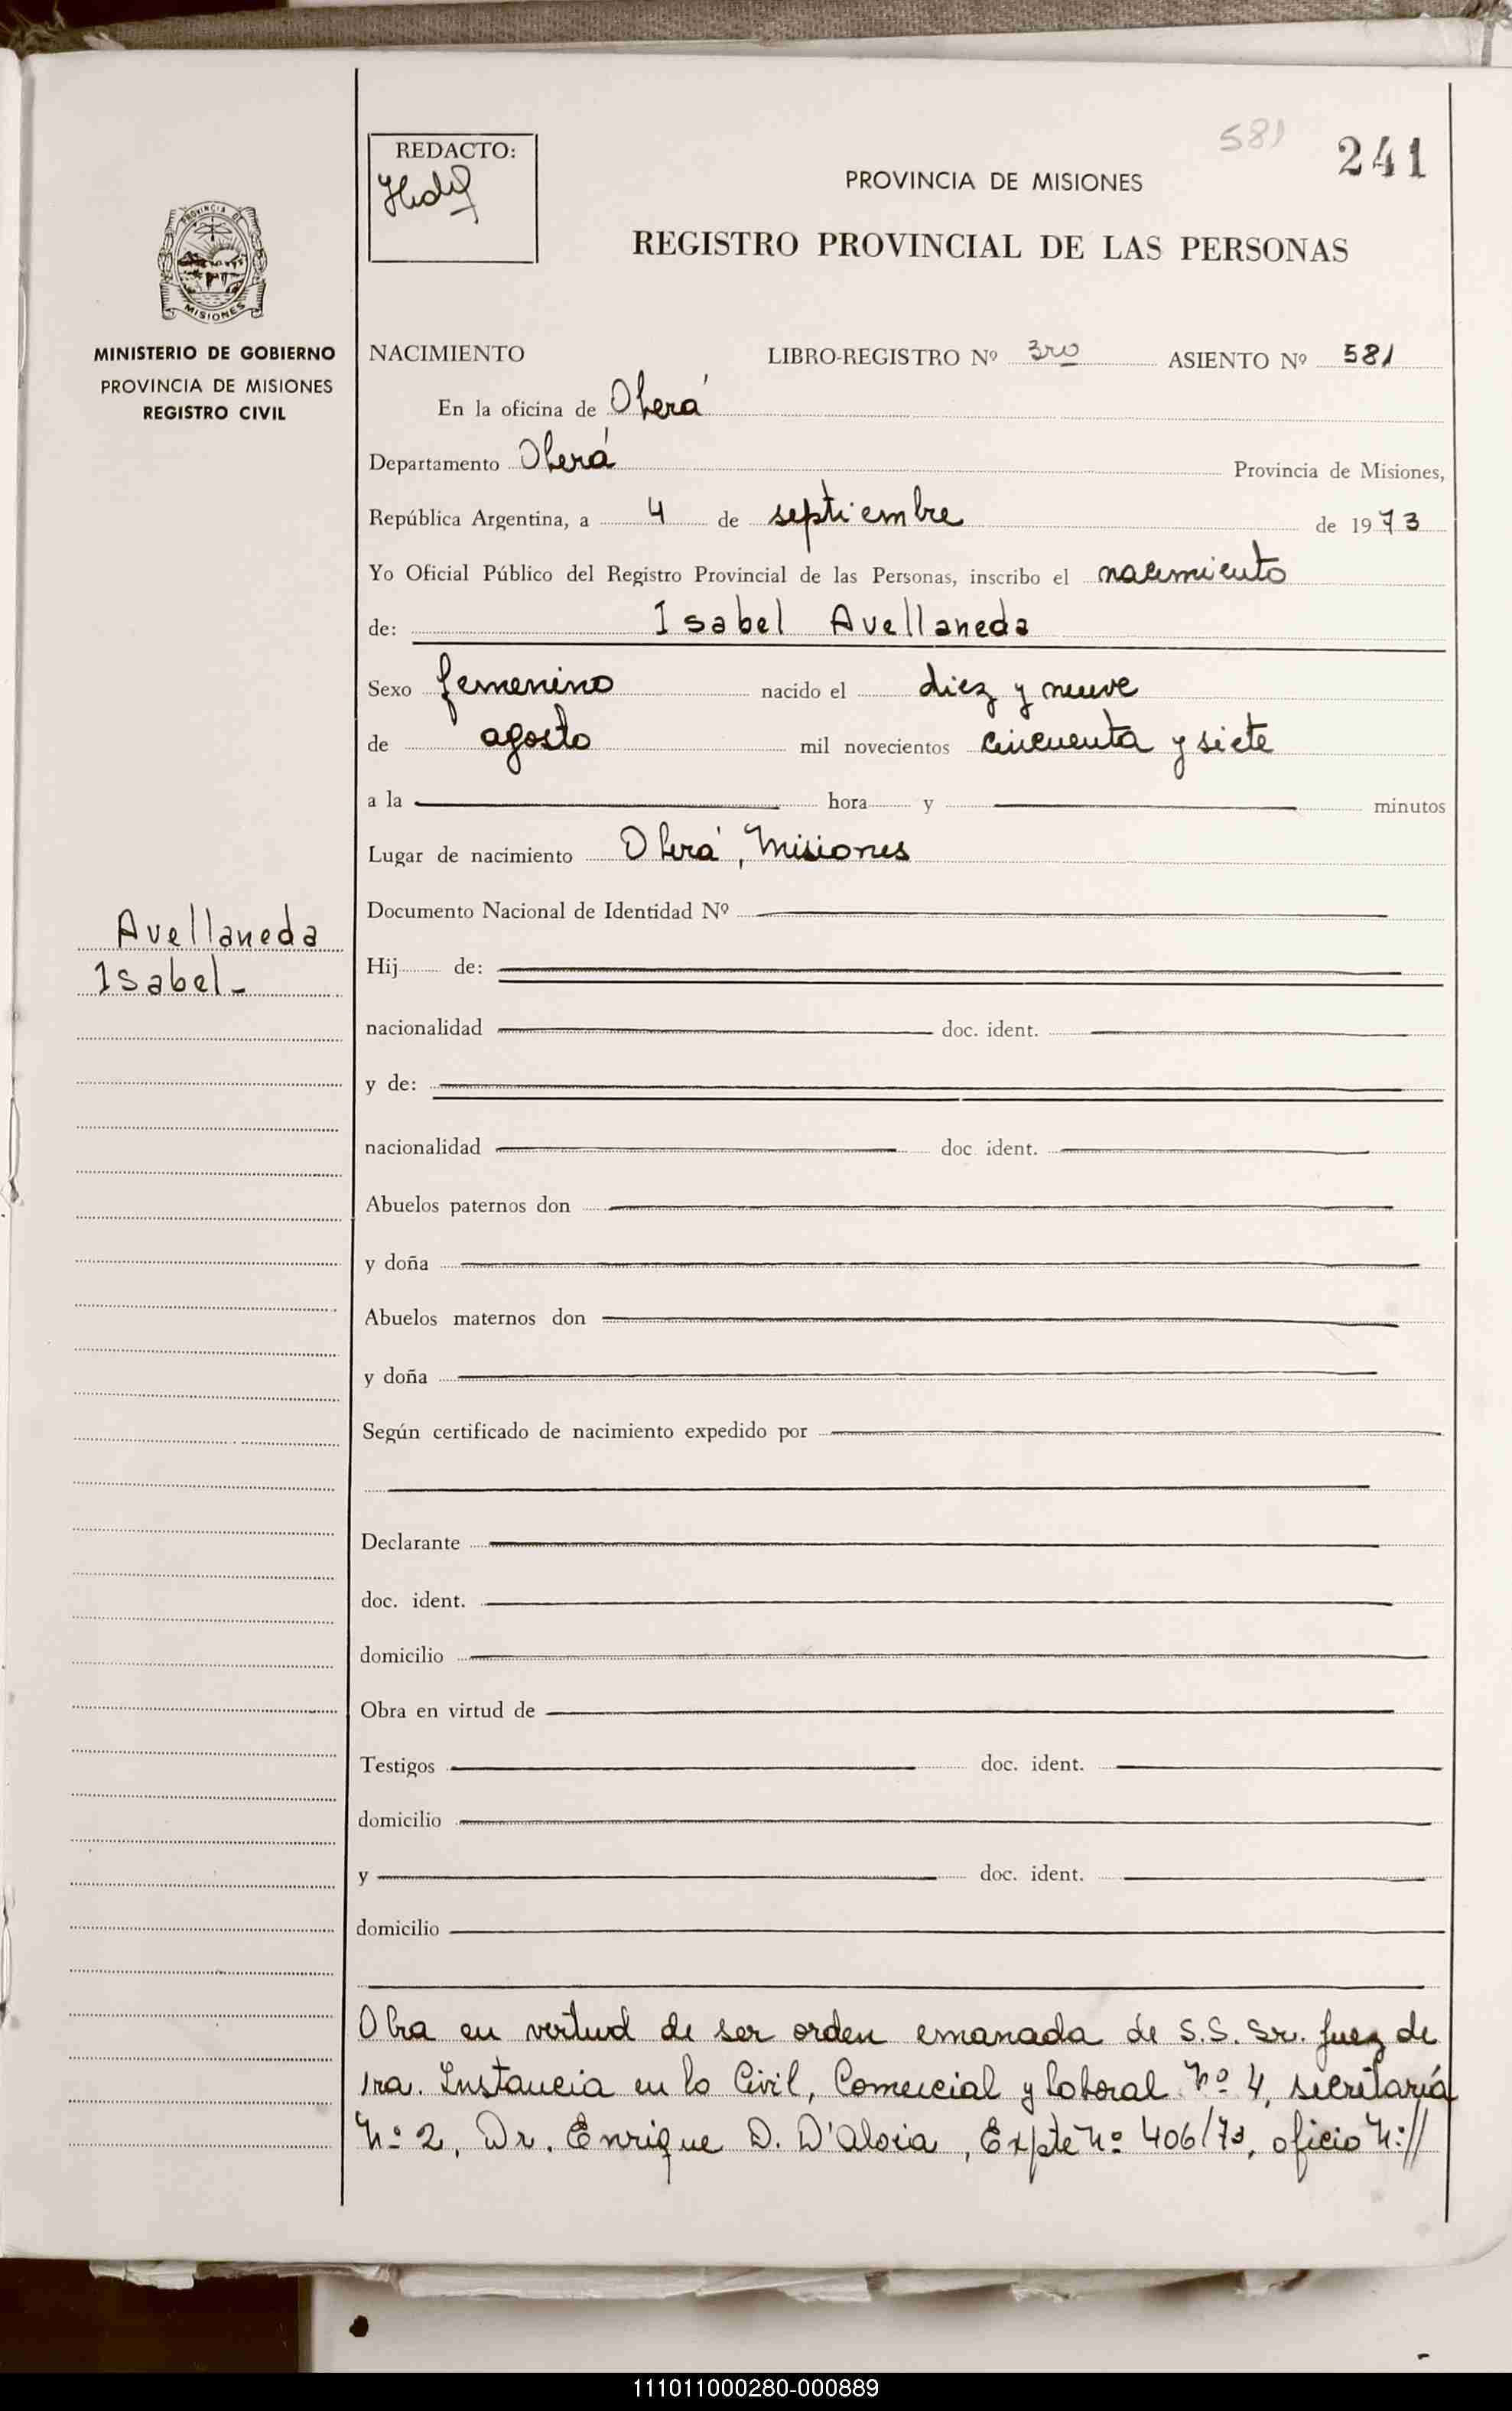 581
241
REDACTO:
PROVINCIA DE MISIONES
REGISTRO PROVINCIAL DE LAS PERSONAS
PROVINCIA DE
MISIONES
MINISTERIO DE GOBIERNO
PROVINCIA DE MISIONES
REGISTRO CIVIL
Avellaneda
Isabel-
NACIMIENTO LIBRO-REGISTRO Nº 3ro ASIENTO Nº 581
En la oficina de Oberá
Departamento Oberá Provincia de Misiones,
República Argentina, a 4 de septiembre de 1973
Yo Oficial Público del Registro Provincial de las Personas, inscribo el nacimiento
de: Isabel Avellaneda
Sexo femenino nacido el diez y nueve
de agosto mil novecientos cincuenta y siete
a la hora y minutos
Lugar de nacimiento Oberá, Misiones
Documento Nacional de Identidad Nº
Hij de:
nacionalidad doc. ident.
y de:
nacionalidad doc ident.
Abuelos paternos don
y doña
Abuelos maternos don
y doña
Según certificado de nacimiento expedido por
Declarante
doc. ident.
domicilio
Obra en virtud de
Testigos doc. ident.
domicilio
y doc. ident.
domicilio
Obra en virtud de ser orden emanada de S.S. Sr. Juez de
1ra. Instancia en lo Civil, Comercial y Laboral Nº 4, secretaría
Nº 2, Dr. Enrique D. D'Aloia, Expte Nº 406/73, oficio N:||
111011000280-000889